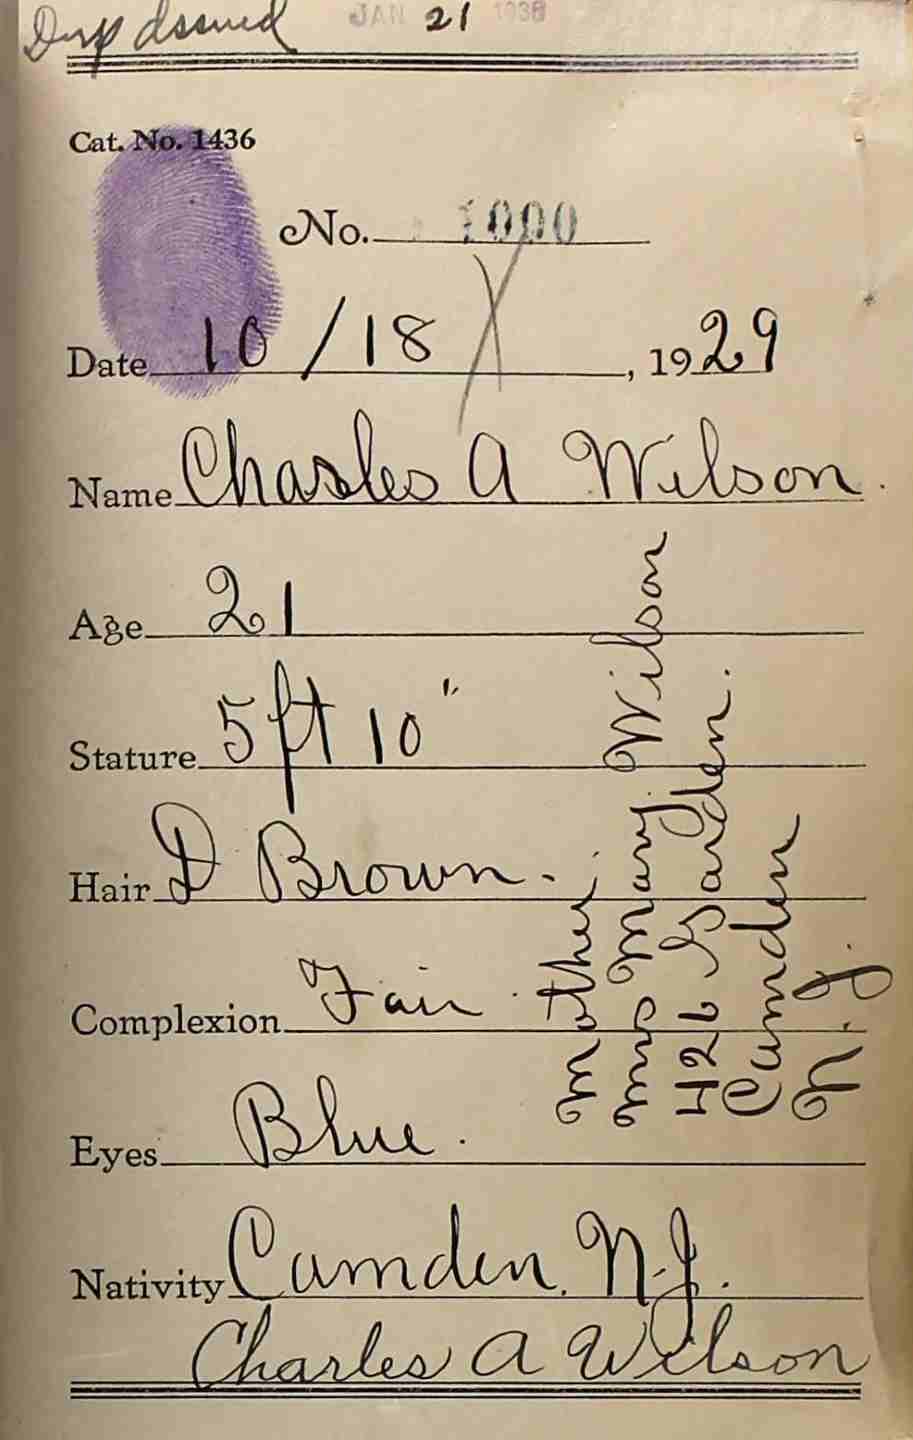 Dup Issued JAN 21 1938
Cat. No. 1436
No. 1000
Date 10/18, 1929
Name Charles A Wilson.
Age 21
Stature 5ft 10"
Hair D Brown.
Complexion Fair
Eyes Blue.
Nativity Camden. N.J.
Charles A Wilson
Mother
Mrs Mary Wilson
426 Garden.
Camden
N.J.